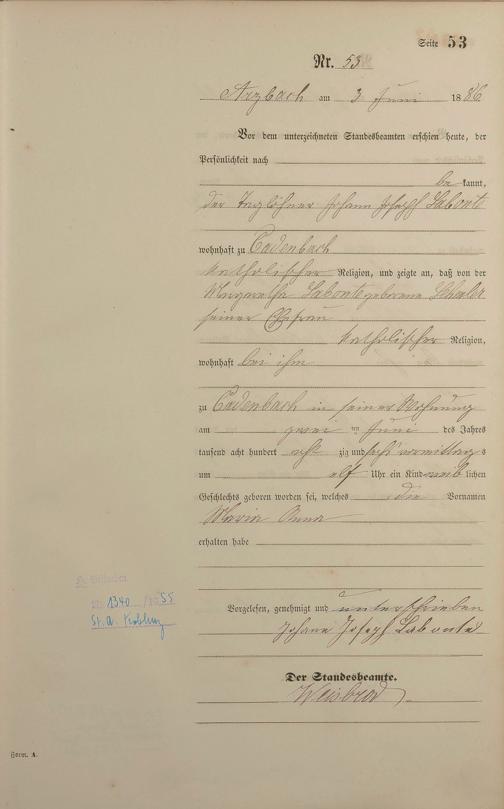 Seite 53
Nr. 53
Arzbach am 3 Juni 1886
Vor dem unterzeichneten Standesbeamten erschien heute, der
Persönlichkeit nach
be kannt,
der Taglöhner Johann Joseph Labonte
wohnhaft zu Cadenbach
katholischer Religion, und zeigte an, daß von der
Margaretha Labonte geborene
seiner Ehefrau
katholischer Religion,
wohnhaft bei ihm
zu Cadenbach in seiner Wohnung
am zwei ten Juni des Jahres
tausend acht hundert acht zig und sechs vormittags
um elf Uhr ein Kind weib lichen
Geschlechts geboren worden sei, welches die Vornamen
Maria Anna
erhalten habe
Nr. 1340 /1955
St. A. Koblenz
Vorgelesen, genehmigt und unterschrieben
Johann Joseph Labonte
Der Standesbeamte.
Weisbrod
Form. A.